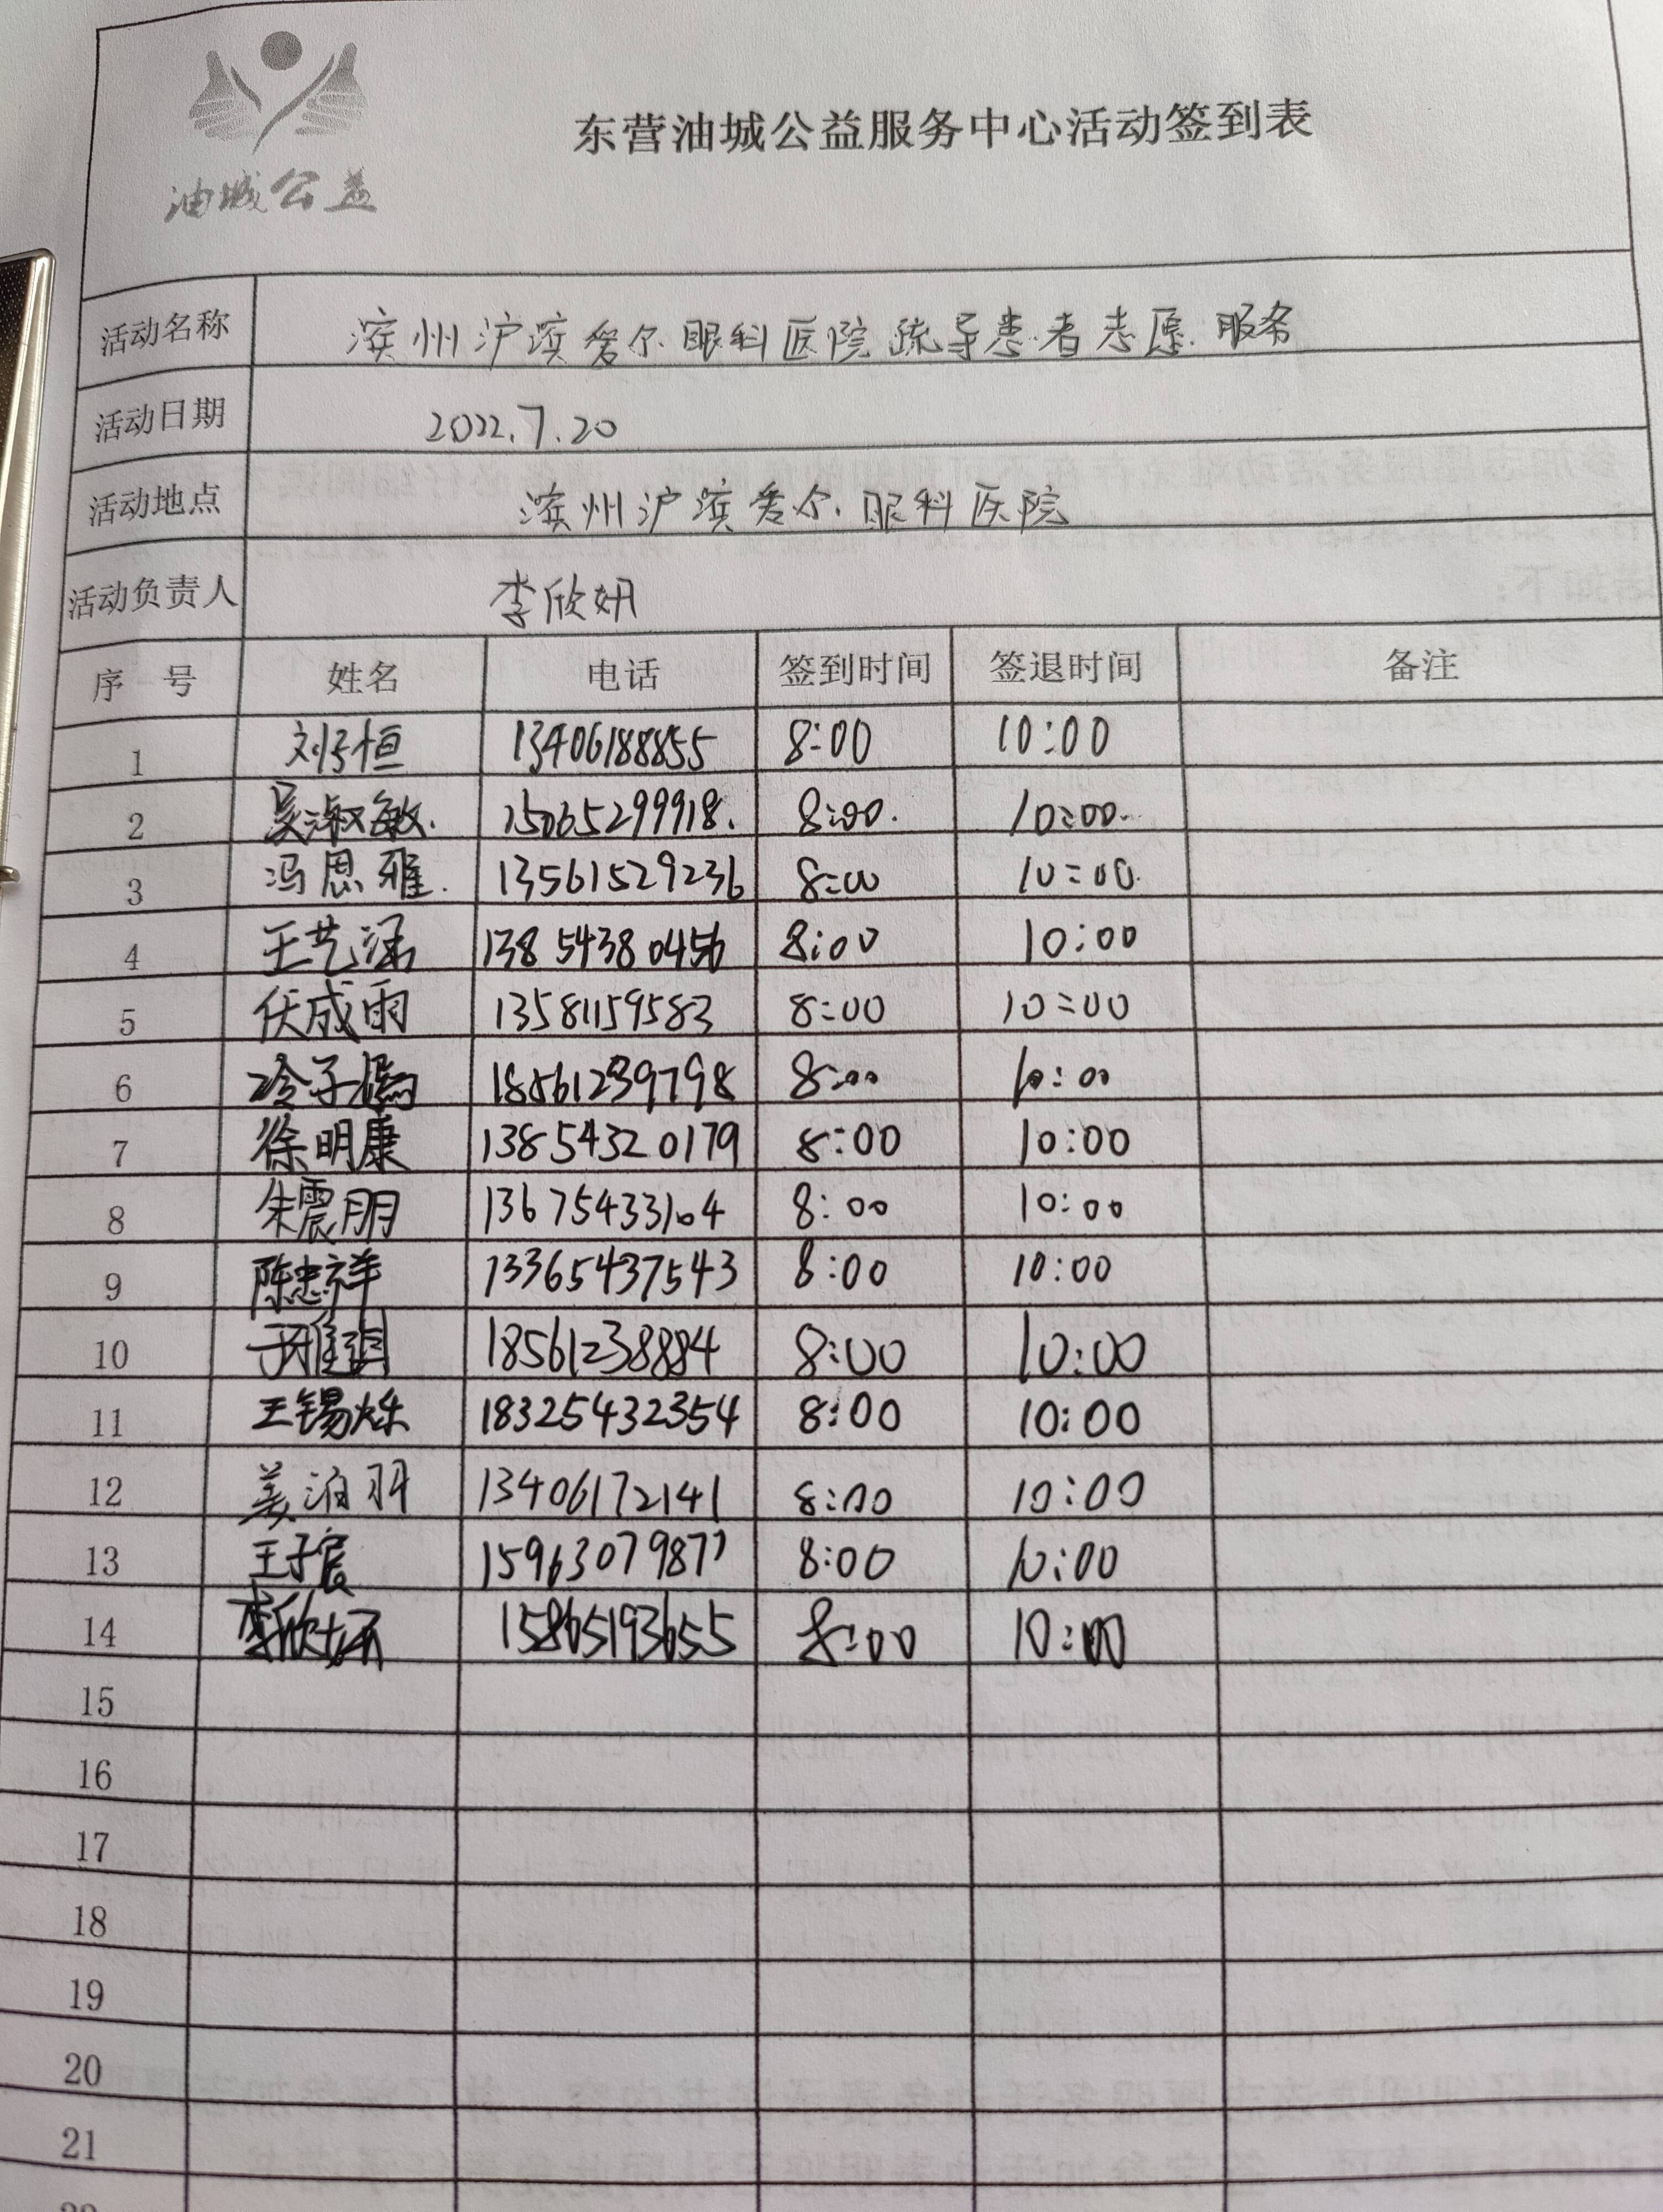 油城公益
东营油城公益服务中心活动签到表
活动名称 滨州沪滨爱尔眼科医院疏导患者志愿服务
活动日期 2022.7.20
活动地点 滨州沪滨爱尔眼科医院
活动负责人 李欣妍
序号 姓名 电话 签到时间 签退时间 备注
1 刘子恒 13406188855 8:00 10:00
2 吴淑敏. 15065299918. 8:00. 10:00.
3 冯思雅. 13561529236 8:00 10:00.
4 王艺涵 13854380456 8:00 10:00
5 伏成雨 13581159583 8:00 10:00
6 冷子嫣 18561239798 8:00 10:00
7 徐明康 13854320179 8:00 10:00
8 朱震朋 13675433104 8:00 10:00
9 陈忠祥 13365437543 8:00 10:00
10 18561238884 8:00 10:00
11 王锡烁 18325432354 8:00 10:00
12 姜泊羽 13406172141 8:00 10:00
13 王子宸 15963079877 8:00 10:00
14 李欣妍 15865193655 8:00 10:00
15
16
17
18
19
20
21